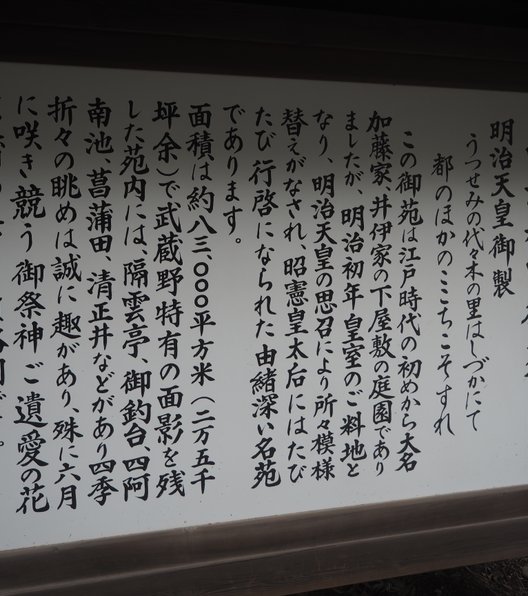 明治天皇御製
うつせみの代々木の里はしづかにて
都のほかのここちこそすれ
この御苑は江戸時代の初めから大名
加藤家、井伊家の下屋敷の庭園であり
ましたが、明治初年皇室のご料地と
なり、明治天皇の思召により所々模様
替えがなされ、昭憲皇太后にはたび
たび行啓になられた由緒深い名苑
であります。
面積は約八三、〇〇〇平方米(二万五千
坪余)で武蔵野特有の面影を残
した苑内には、隔雲亭、御釣台、四阿
南池、菖蒲田、清正井などがあり四季
折々の眺めは誠に趣があり、殊に六月
に咲き競う御祭神ご遺愛の花